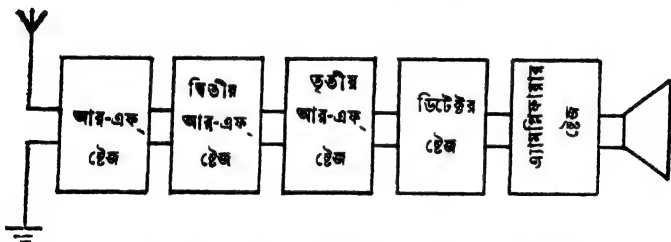 আর-এফ্
ষ্টেজ
দ্বিতীয়
আর-এফ্
ষ্টেজ
তৃতীয়
আর-এফ্
ষ্টেজ
ডিটেক্টর
ষ্টেজ
এ্যামপ্লিফায়ার
ষ্টেজ